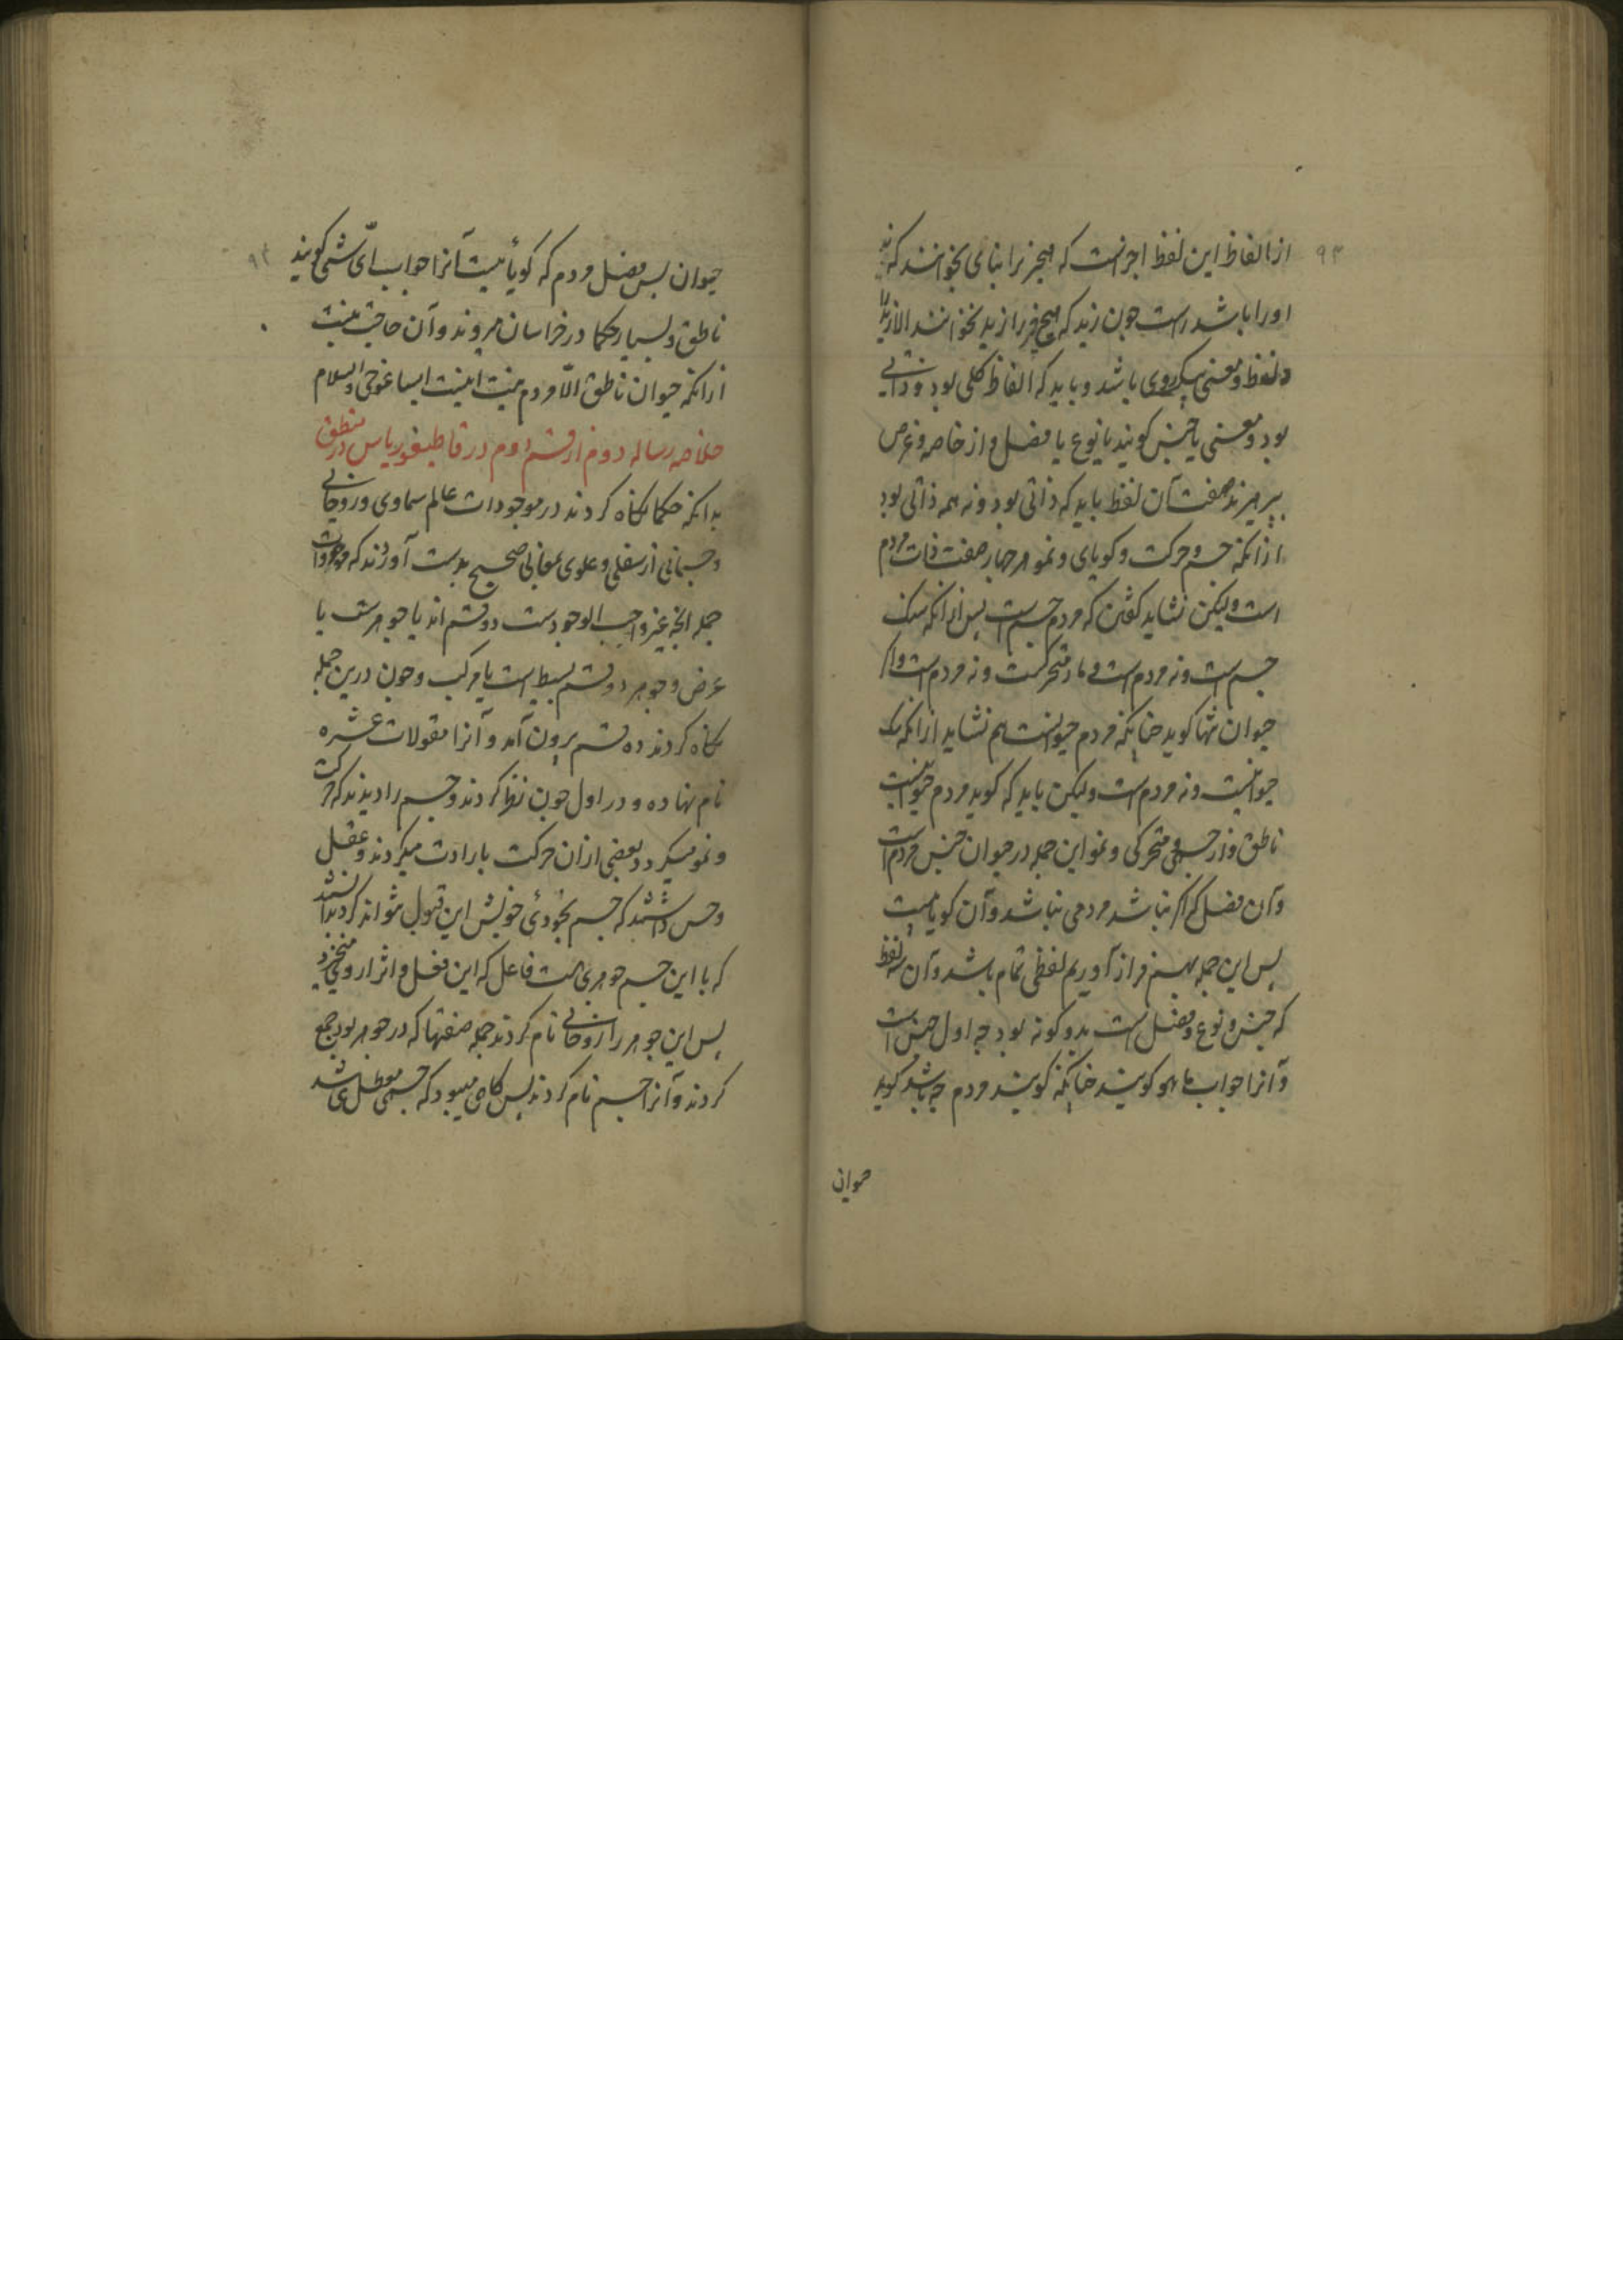 ۹۳
از الفاظ این لفظ اجزاست که هیچیز را بنای بخوانند که
اورا باشد راست چون زید که هیچ چیز را زید نخوانند الا زید را
و لفظ و معنی یکروی باشد و باید که الفاظ کلی بود و ذاتی
بود و معنی یا جنس کویند یا نوع یا فصل و از خاصه و عرض
بپرهیزند صفت آن لفظ باید که ذاتی بود و نه همه ذاتی بود
ازانکه حس و حرکت و کویای و نمو هر چهار صفت ذات مردم
است ولیکن نشاید کفتن که مردم جسم است پس ازانکه سنک
جسم است و نه مردم است و متحرکست و نه مردم است و اکر
حیوان تنها کوید چنانکه مردم حیوانست هم نشاید ازانکه سک
حیوانست و نه مردم است ولیکن باید که کوید مردم حیوانیست
ناطق و از جسمی و متحرکی و نمو این جمله در حیوان جنس مردم است
و آن فصل که اکر نباشد مردمی نباشد و آن کویائیست
پس این جمله بهم فراز آوریم لفظی تمام باشد و آن سه لفظ
که جنس و نوع و فصل است بدو کونه بود چه اول جنس است
و آنرا جواب ماهو کویند چنانکه کویند مردم چه باشد کوید
حیوان
۹۴
حیوان پس فصل مردم که کویائیست آنرا جواب ایّ شئ کویند
ناطق و بسیار حکما در خراسان میروند و آن حاجت نیست
ازانکه حیوان ناطق الّا مردم نیست اینست ایساغوجی والسلام
خلاصه رساله دوم از قسم دوم در قاطیغوریاس در منطق
بدانکه حکما نکاه کردند در موجودات عالم سماوی و روحانی
و جسمانی از سفلی و علوی بمعانی صحیح بدست آوردند که موجودات
جمله آنچه غیر واجب الوجودست دو قسم اند یا جوهرست یا
عرض و جوهر دو قسم بسیط است یا مرکب و چون درین جمله
نکاه کردند ده قسم برون آمد و آنرا مقولات عشره
نام نهاده و در اول چون نظر کردند و جسم را دیدند که حرکت
و نمو میکرد و بعضی ازان حرکت بارادت میکردند و عقل
و حس داشتند که جسم بخودئ خویش این قبول نتواند کرد بدانستند
که با این جسم جوهری هست فاعل که این فعل و اثر از وی میخیزد
پس این جوهر را روحانی نام کردند جمله صفتها که در جوهر بود جمع
کردند و آنرا جسم نام کردند پس کاهی میبود که جسمی معطل می شد